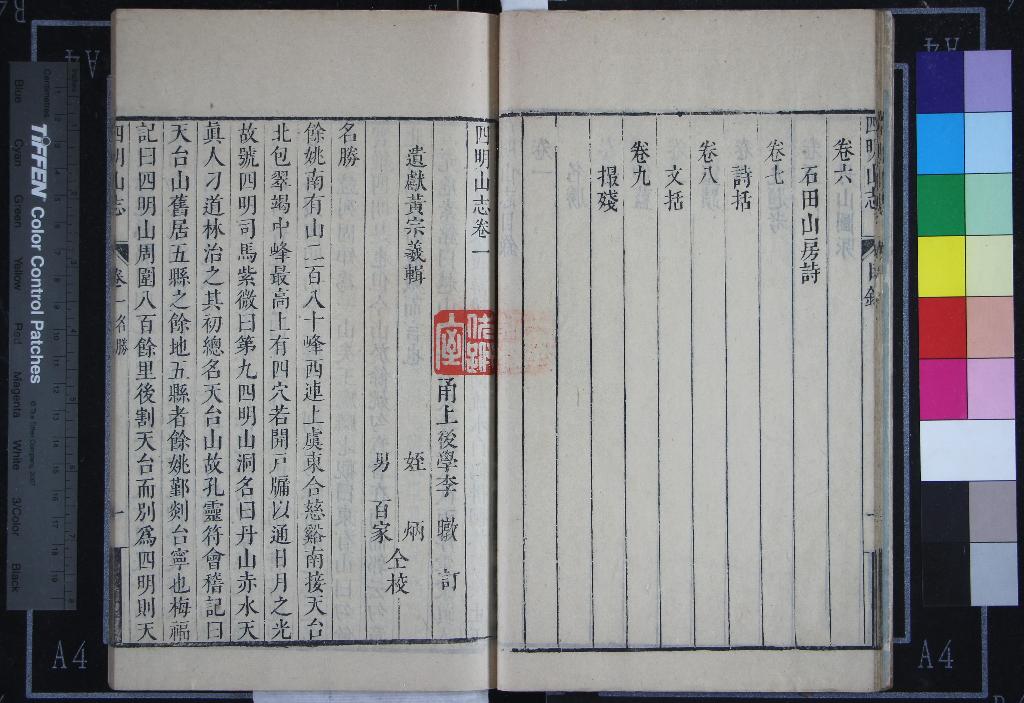 卷六
石田山房詩
卷七
詩括
卷八
文括
卷九
撮殘
四明山志卷一
甬上後學李 暾 訂
遺獻黃宗羲輯
姪 炳
男 百家
仝校
名勝
餘姚南有山二百八十峰西連上虞東合慈谿南接天台
北包翠竭中峰最高上有四穴若開戶牖以通日月之光
故號四明司馬紫微曰第九四明山洞名曰丹山赤水天
真人刁道林治之其初總名天台山故孔靈符會稽記曰
天台山舊居五縣之餘地五縣者餘姚鄞剡台寧也梅福
記曰四明山周圍八百餘里後割天台而別爲四明則天
四明山志
卷一名勝
一
TIFFEN Color Control Patches
Centimetres
Blue
Cyan
Green
Yellow
Red
Magenta
White
3/Color
Black
A4
A4
A4
A4